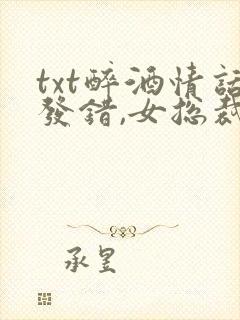 txt醉酒情話
發錯,女總裁
承昱